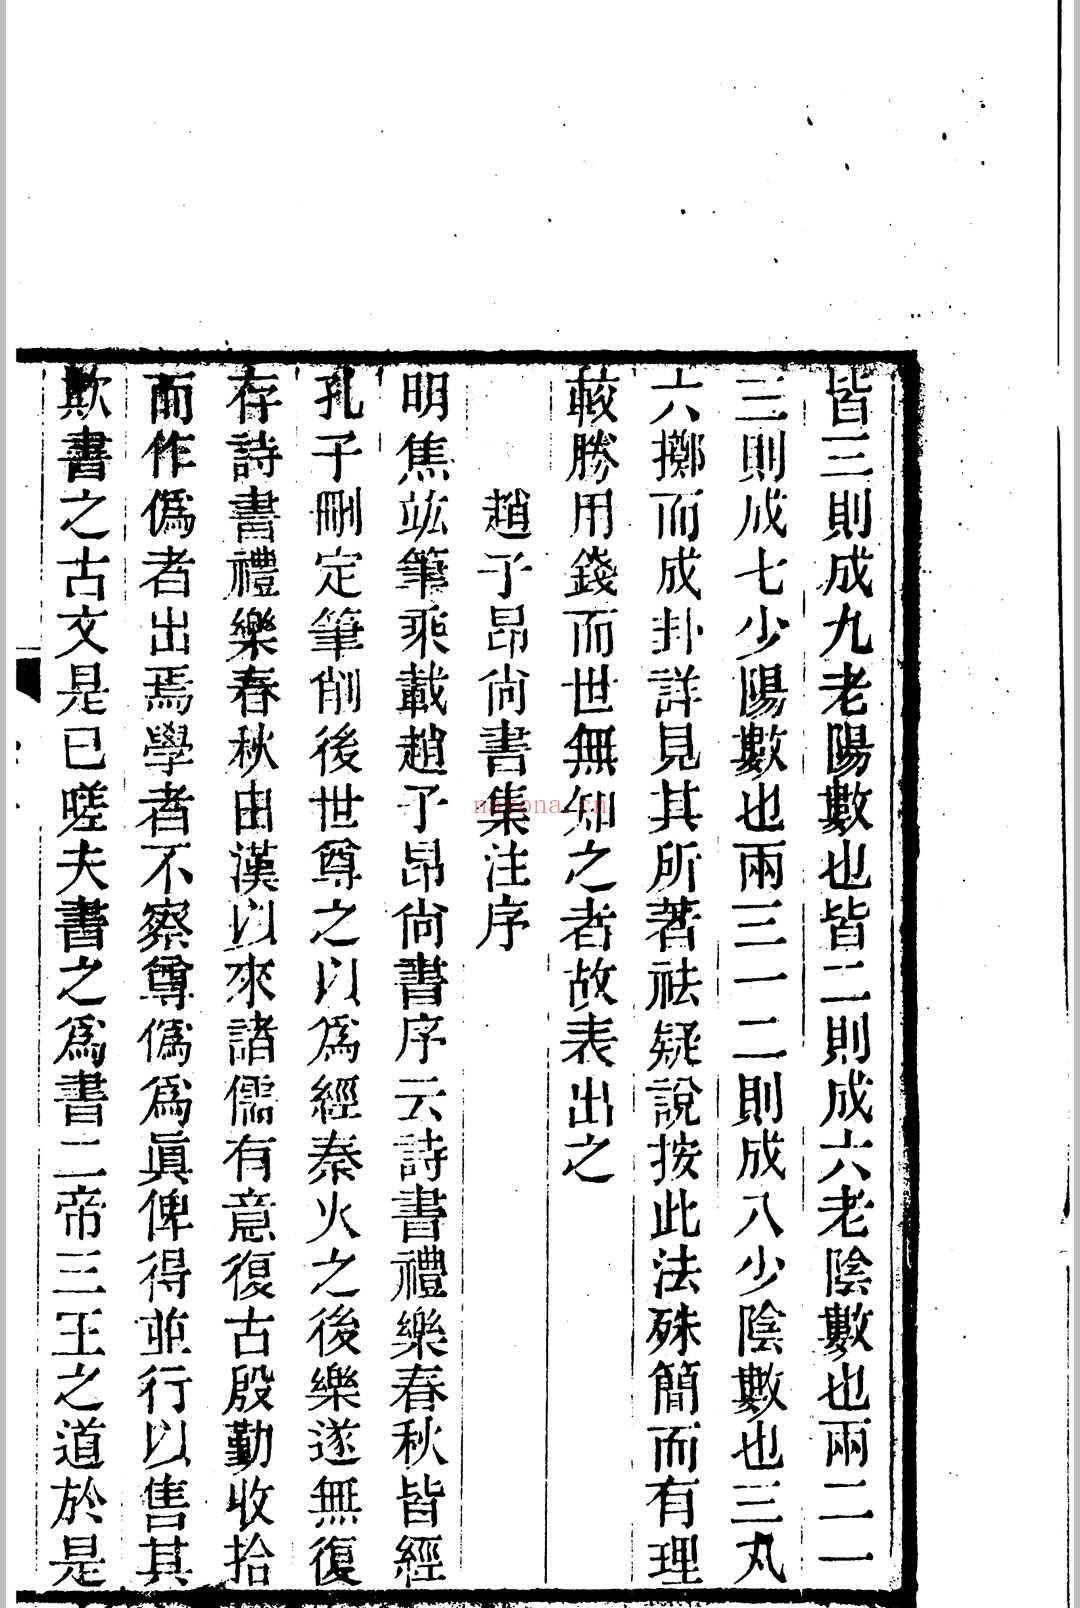 皆三則成九老陽數也皆二則成六老陰數也兩二一
三則成七少陽數也兩三一二則成八少陰數也三丸
六擲而成卦詳見其所著祛疑說按此法殊簡而有理
較勝用錢而世無知之者故表出之
趙子昂尚書集注序
明焦竑筆乘載趙子昂尚書序云詩書禮樂春秋皆經
孔子刪定筆削後世尊之以爲經秦火之後樂遂無復
存詩書禮樂春秋由漢以來諸儒有意復古殷勤收拾
而作僞者出焉學者不察尊僞爲眞俾得並行以售其
欺書之古文是已嗟夫書之爲書二帝三王之道於是
nayona.cn